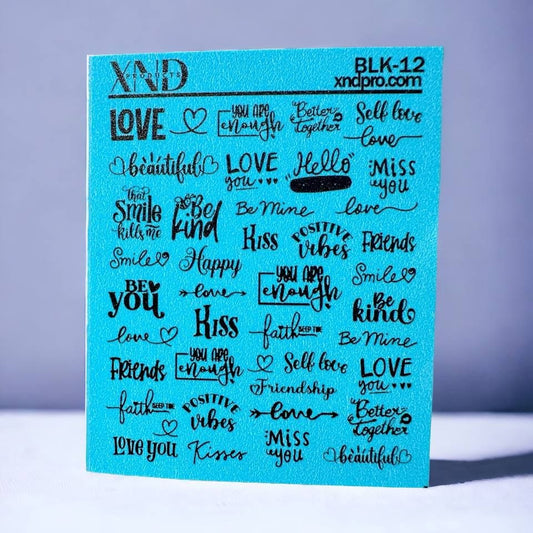 XND
PRODUCTS
BLK-12
xndpro.com
LOVE
YOU ARE
enough
Better
Together
Self love
love
beautiful
LOVE
you
"Hello"
Miss
you
that
Smile
kills me
Be
kind
Be Mine
love
Kiss
POSITIVE
vibes
FRiENDS
Smile
Happy
YOU ARE
enough
Smile
BE
YOU
love
Be
kind
love
Kiss
faith
Be Mine
FRiENDS
YOU ARE
enough
Self love
LOVE
you
Friendship
faith
POSITIVE
vibes
love
Better
Together
LOVE YOU
Kisses
Miss
you
beautiful